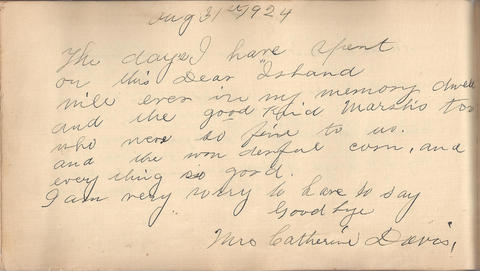 Aug 31st 1924
The days I have spent
on this Dear "Island
will ever in my memory dwell
and the good Kind Marshs too
who were so fine to us.
and the won derful corn, and
every thing so good.
I am very sorry to have to say
Good bye
Mrs Catherine Davis,